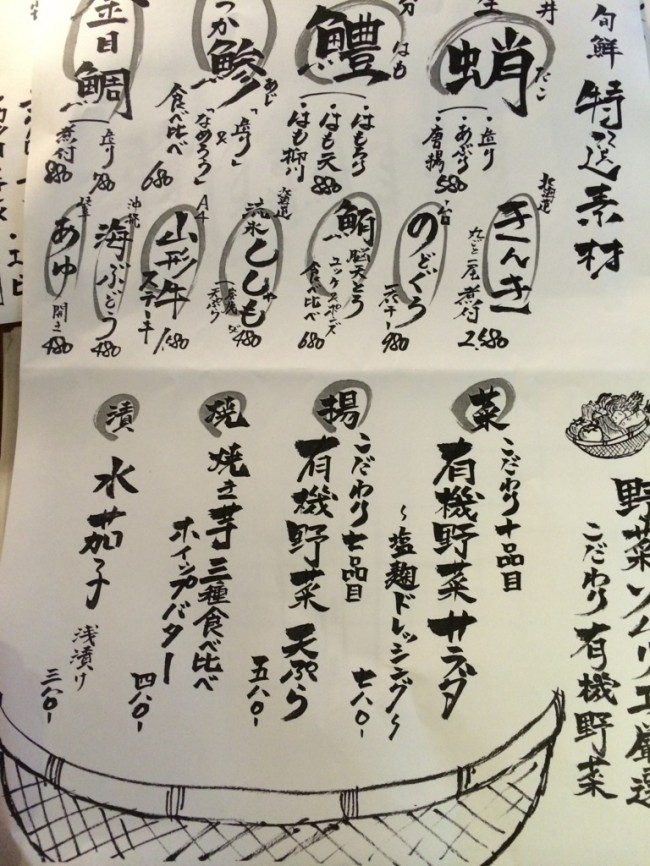 旬鮮
特選素材
蛸
たこ
・造り
・あぶり
・唐揚
580
鱧
はも
・はも造り
・はも天
・はも柳川
880
鯵
あじ
「造り」
&
「なめろう」
食べ比べ
680
金目鯛
造り
780
煮付
880
北海道
きんき
丸ごと一尾煮付
2,580
のどぐろ
一夜干
980
鮪
脳天とろ
食べ比べ
680
北海道
流氷
ししゃも
天ぷら
480
A4
山形牛
ステーキ
1,580
沖縄
海ぶどう
480
あゆ
開き
480
野菜ソムリエ厳選
こだわり有機野菜
菜
こだわり十品目
有機野菜サラダ
〜塩麹ドレッシング〜
七八〇-
揚
こだわり七品目
有機野菜天ぷら
五八〇-
焼
焼き芋三種食べ比べ
ホイップバター
四八〇-
漬
水茄子
浅漬け
三八〇-